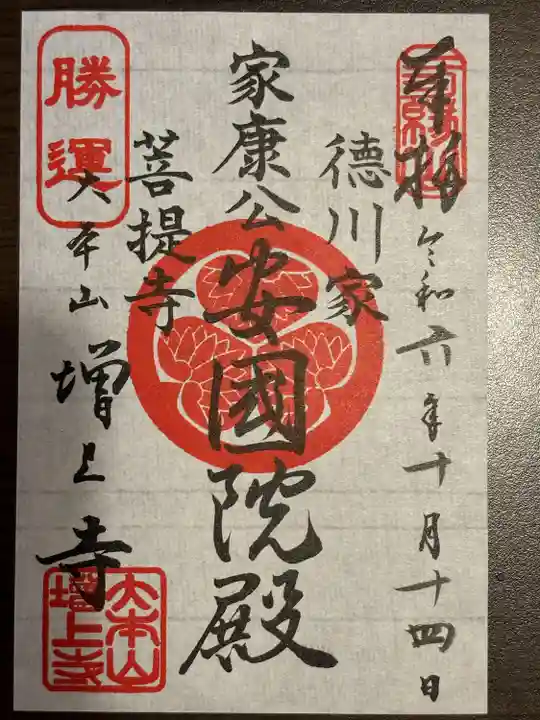 奉拝
令和六年十月十四日
徳川家
家康公
安國院殿
菩提寺
勝運
大本山
増上寺
大本山
増上寺